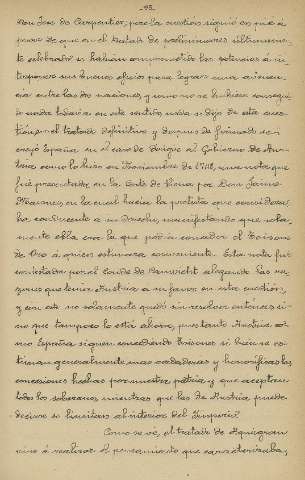 -95-
Don José de Carpentier, pero la cuestión siguió en pie a
pesar de que en el tratado de preliminares ultimamen-
te celebrado se habian comprometido las potencias á in-
terponer sus buenos oficios para lograr una avenen-
cia entre las dos naciones, y como no se hubiese consegui-
do nada todavia en este sentido nada se dijo de esta cues-
tion en el tratado definitivo y despues de firmado se
España en el caso de dirigir al Gobierno de Aus-
tria como lo hizo en Noviembre de 1748, una nota que
fué presentada en la Corte de Viena por Don Jaime
Masones en la cual hacia la protesta que considera-
ba conducente a su derecho, manifestando que sola-
mente ella era la que podia conceder el Toison
de Oro á quien estimara conveniente. Esta nota fué
contestada por el Conde de alegando las ra-
zones que tenia Austria a su favor en esta cuestión,
y con esto no solamente quedó sin resolver entonces si-
no que tampoco lo está ahora, pues tanto Austria co-
mo España siguen concediendo Toisones si bien se es-
timan generalmente mas verdaderas y honorificas las
concesiones hechas por nuestra patria y que aceptan
todos los soberanos mientras que las de Austria puede
decirse se limitan al interior del Imperio.
Como se vé, el tratado de Aquisgran
vino á realizar el pensamiento que caracterizaba,